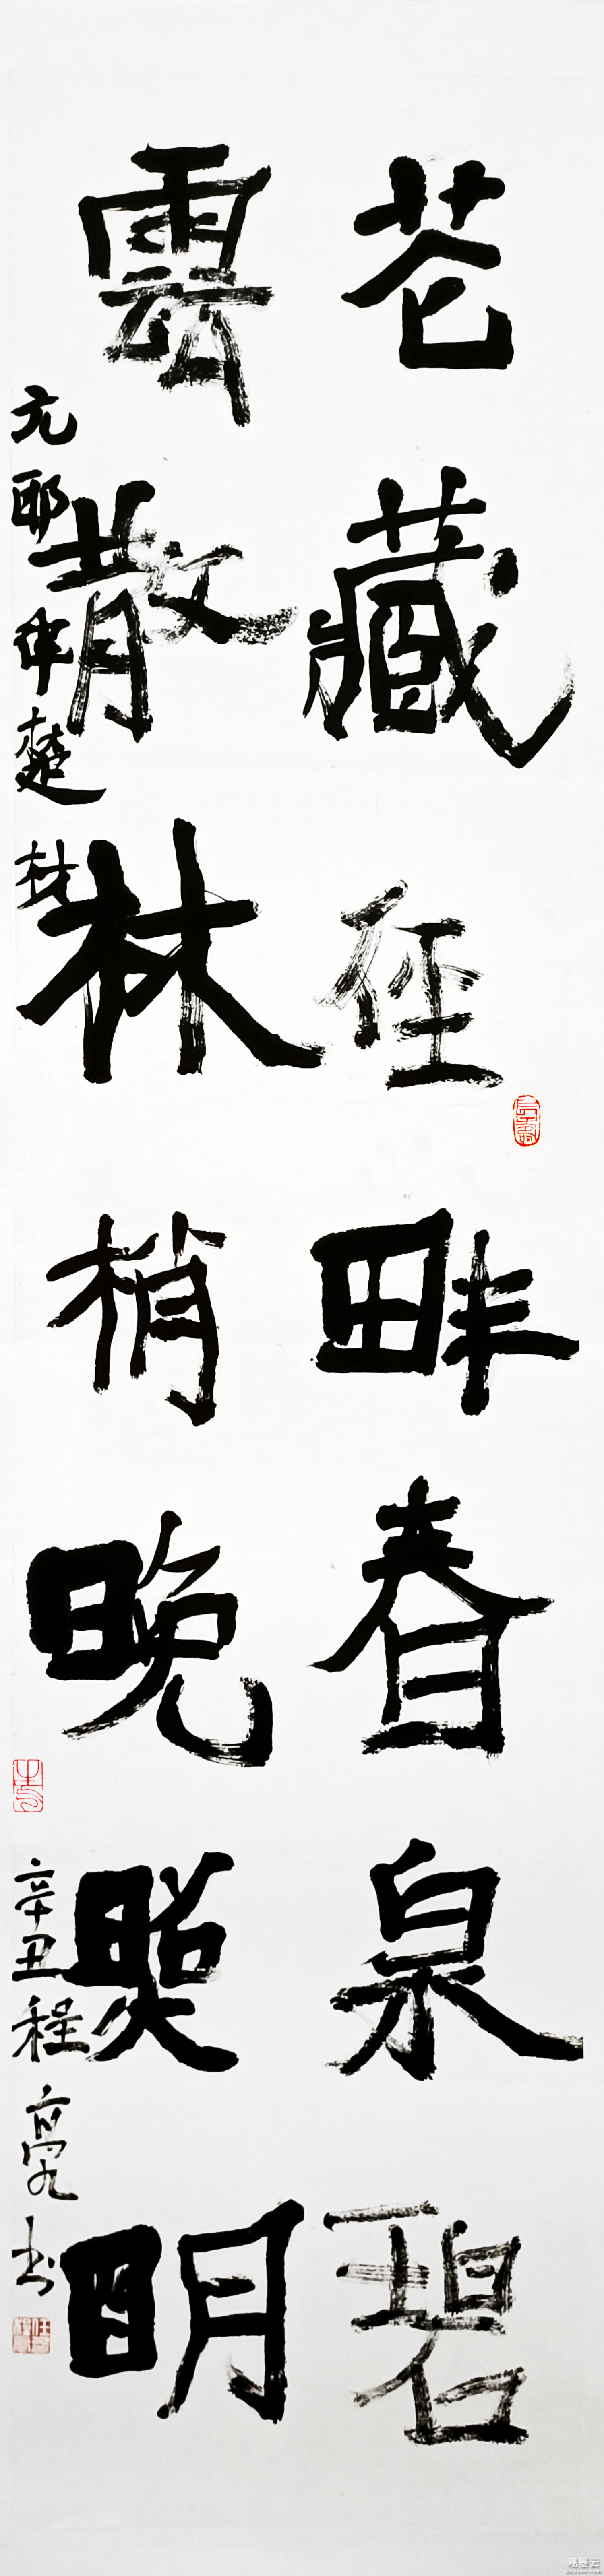 花藏径畔春泉碧
雲散林梢晚照明
元耶律楚材
辛丑程亮书